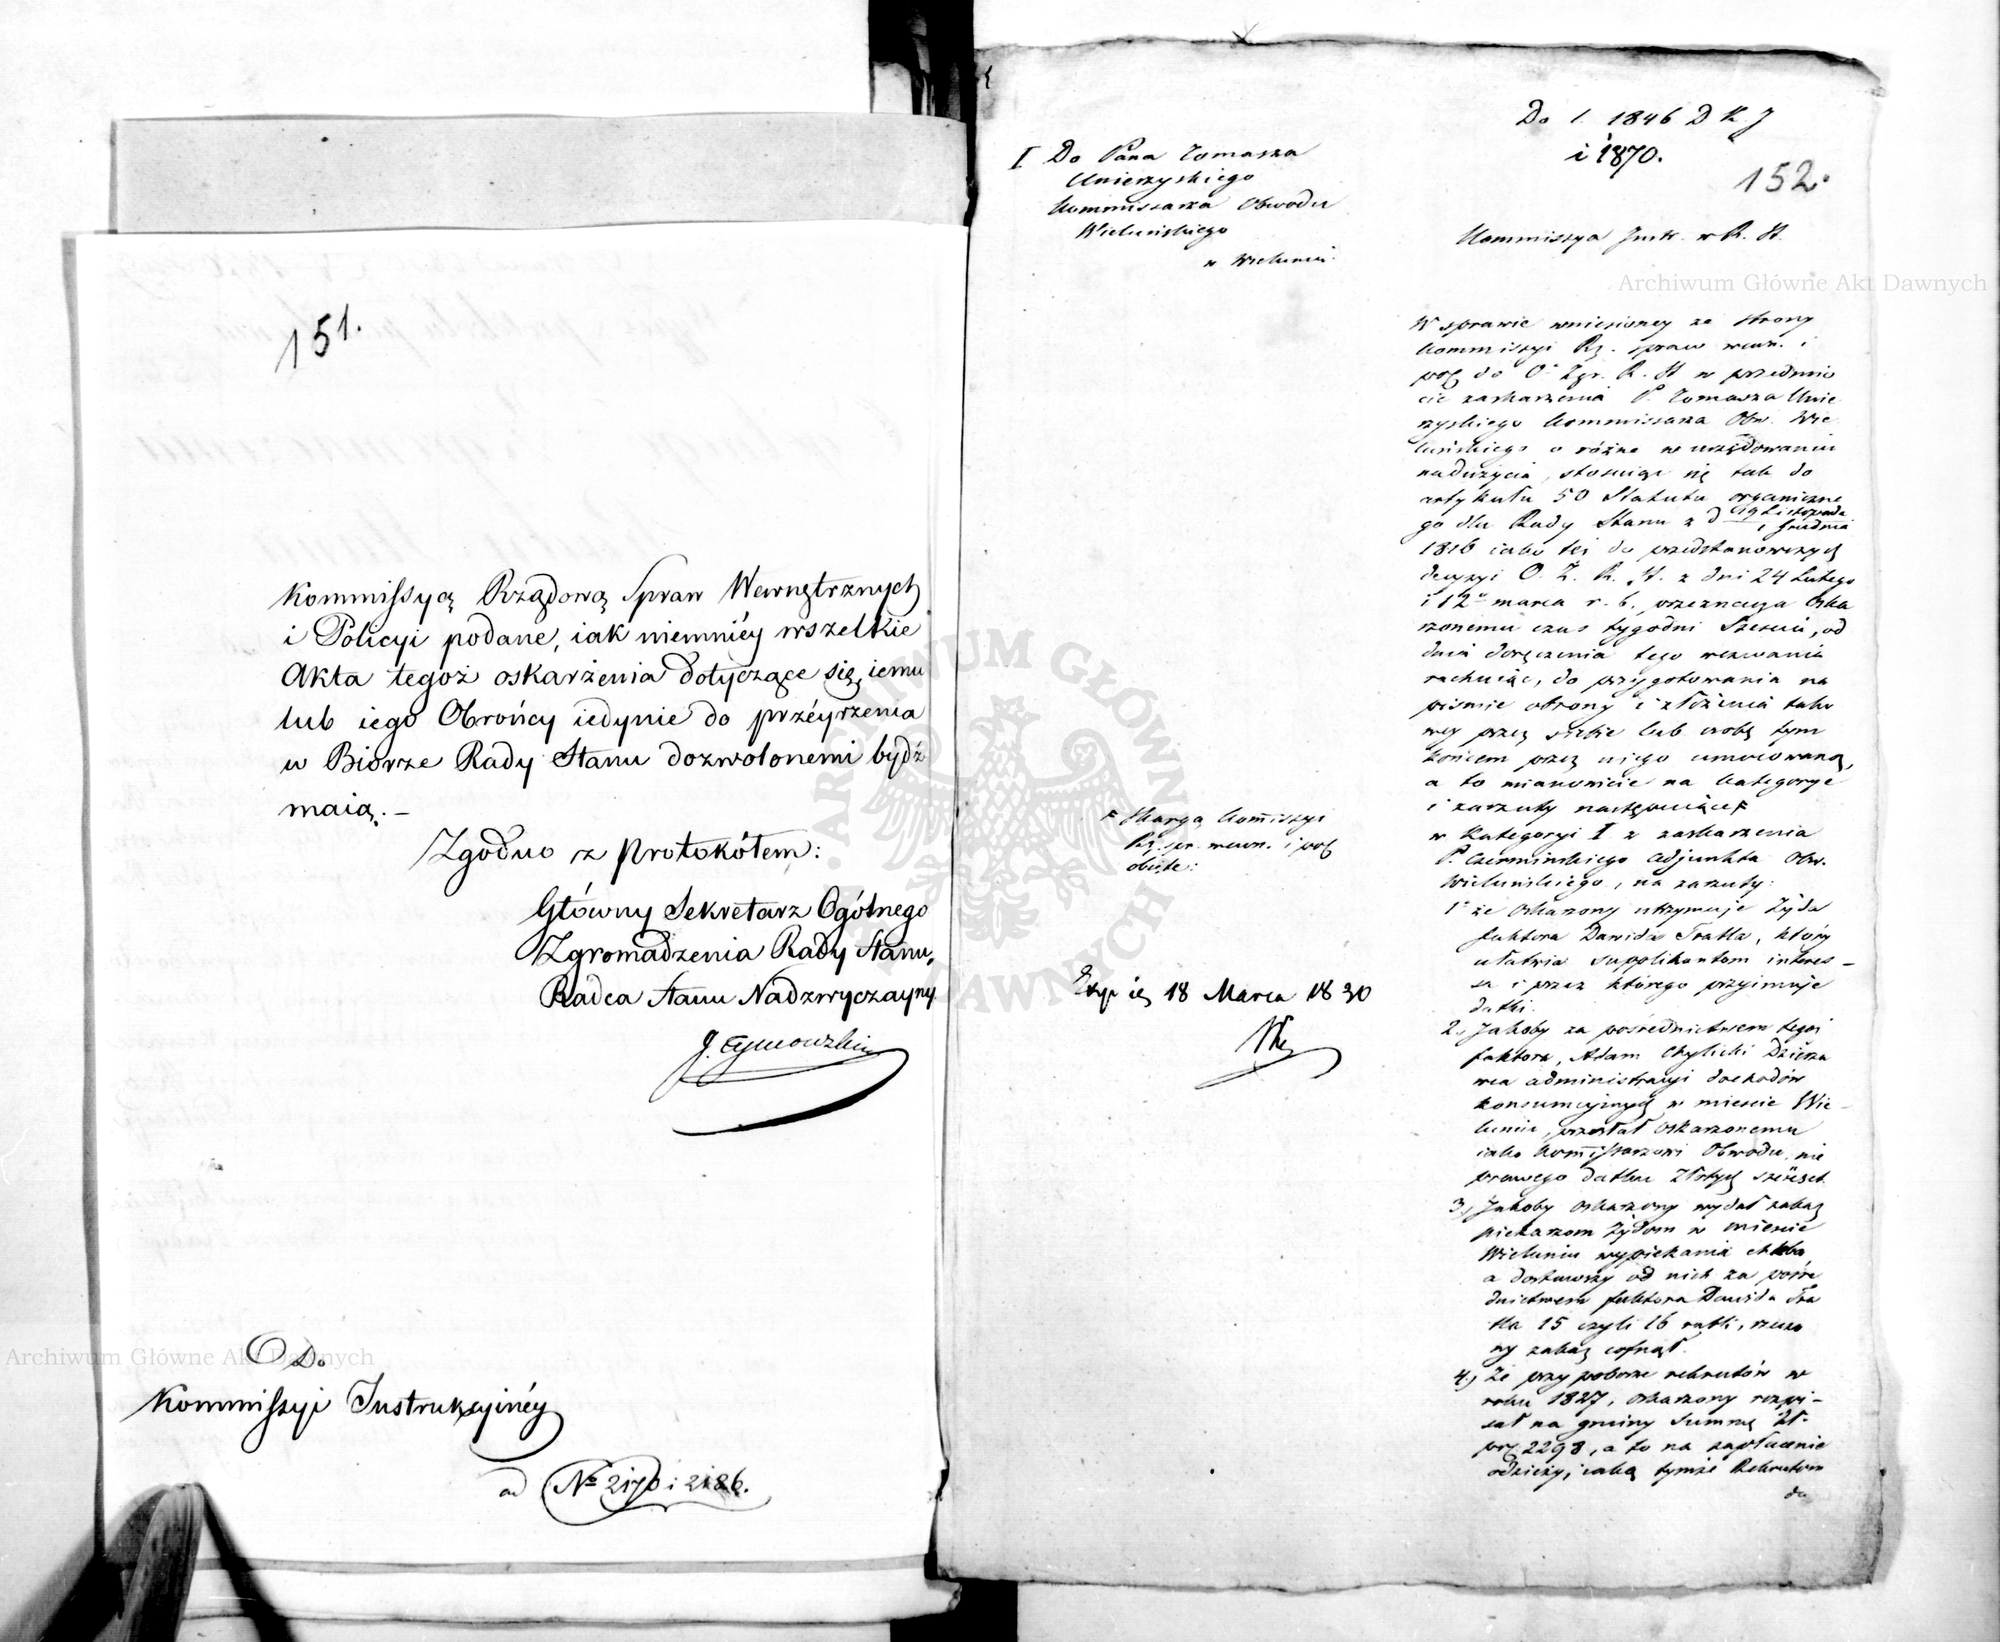 151.
Kommissyą Rządową Spraw Wewnętrznych
i Policyi podane, iak niemniéy wszelkie
Akta tegoż oskarżenia dotyczące się, iemu
lub iego Obrońcy iedynie do przéyrzenia
w Biórze Rady Stanu dozwolonemi bydź
maią. —
Zgodno z Protokółem:
Główny Sekretarz Ogólnego
Zgromadzenia Rady Stanu,
Radca Stanu Nadzwyczayny
Do
Kommissyi Instrukcyinéy
ad № 2170 i 2186.
Do l. 1846 D K J
i 1870.
152.
I Do Pana Tomasza
Unierzyskiego
Kommissarza Obwodu
Wieluńskiego
w Wieluniu.
Kommissya Instr. w R. St.
W sprawie wniesioney ze strony
Kommissyi Rz. spraw wewn. i
pol do O. Zgr. R. St w przedmio
cie zaskarżenia P. Tomasza Unie
rzyskiego Kommissarza Obw. Wie
luńskiego o różne w urzędowaniu
nadużycia, stosuiąc się tak do
artykułu 50 Statutu organiczne
go dla Rady Stanu z d 19 Listopada
1 Grudnia
1816 iako też do przedstanowczych
decyzyi O. Z. R. St. z dni 24 Lutego
i 12 marca r. b. przeznacza Oska
rzonemu czas tygodni Sześciu, od
dnia doręczenia tego wezwania
rachuiąc, do przygotowania na
piśmie obrony i złożenia tako
wey przez siebie lub osobę tym
końcem przez niego umocowaną,
a to mianowicie na kategorye
i zarzuty następuiące F
F Skargą Kommissyi
Rz. spr. wewn. i pol
obięte:
w Kategoryi I z zaskarżenia
P. Czermińskiego Adjunkta Obw.
Wieluńskiego, na zarzuty:
1° że Oskarzony utrzymuje Żyda
faktora Dawida Tratla, który
ułatwia supplikantom interes—
sa i przez którego przyjmuje
datki.
2., Jakoby za pośrednictwem tegoż
faktora, Adam Chylicki Dzierża
wca administracyi dochodów
konsumcyjnych w mieście Wie—
luniu, przesłał oskarzonemu
iako Kommissarzowi Obwodu, nie
prawego datku Złotych sześćset.
3., Jakoby oskarzony wydał zakaz
piekarzom Żydom w mieście
Wieluniu wypiekania chleba
a dostawszy od nich za pośre
dnictwem faktora Dawida Tra
tla 15 czyli 16 rubli, rzeczo
ny zakaz cofnął.
4., Że przy poborze rekrutów w
roku 1827, oskarzony rozpi—
sał na gminy Summę Zł.
pol 2298, a to na zapłacenie
odzieży, iaką tymże Rekrutom
da
Exp ię 18 Marca 1830